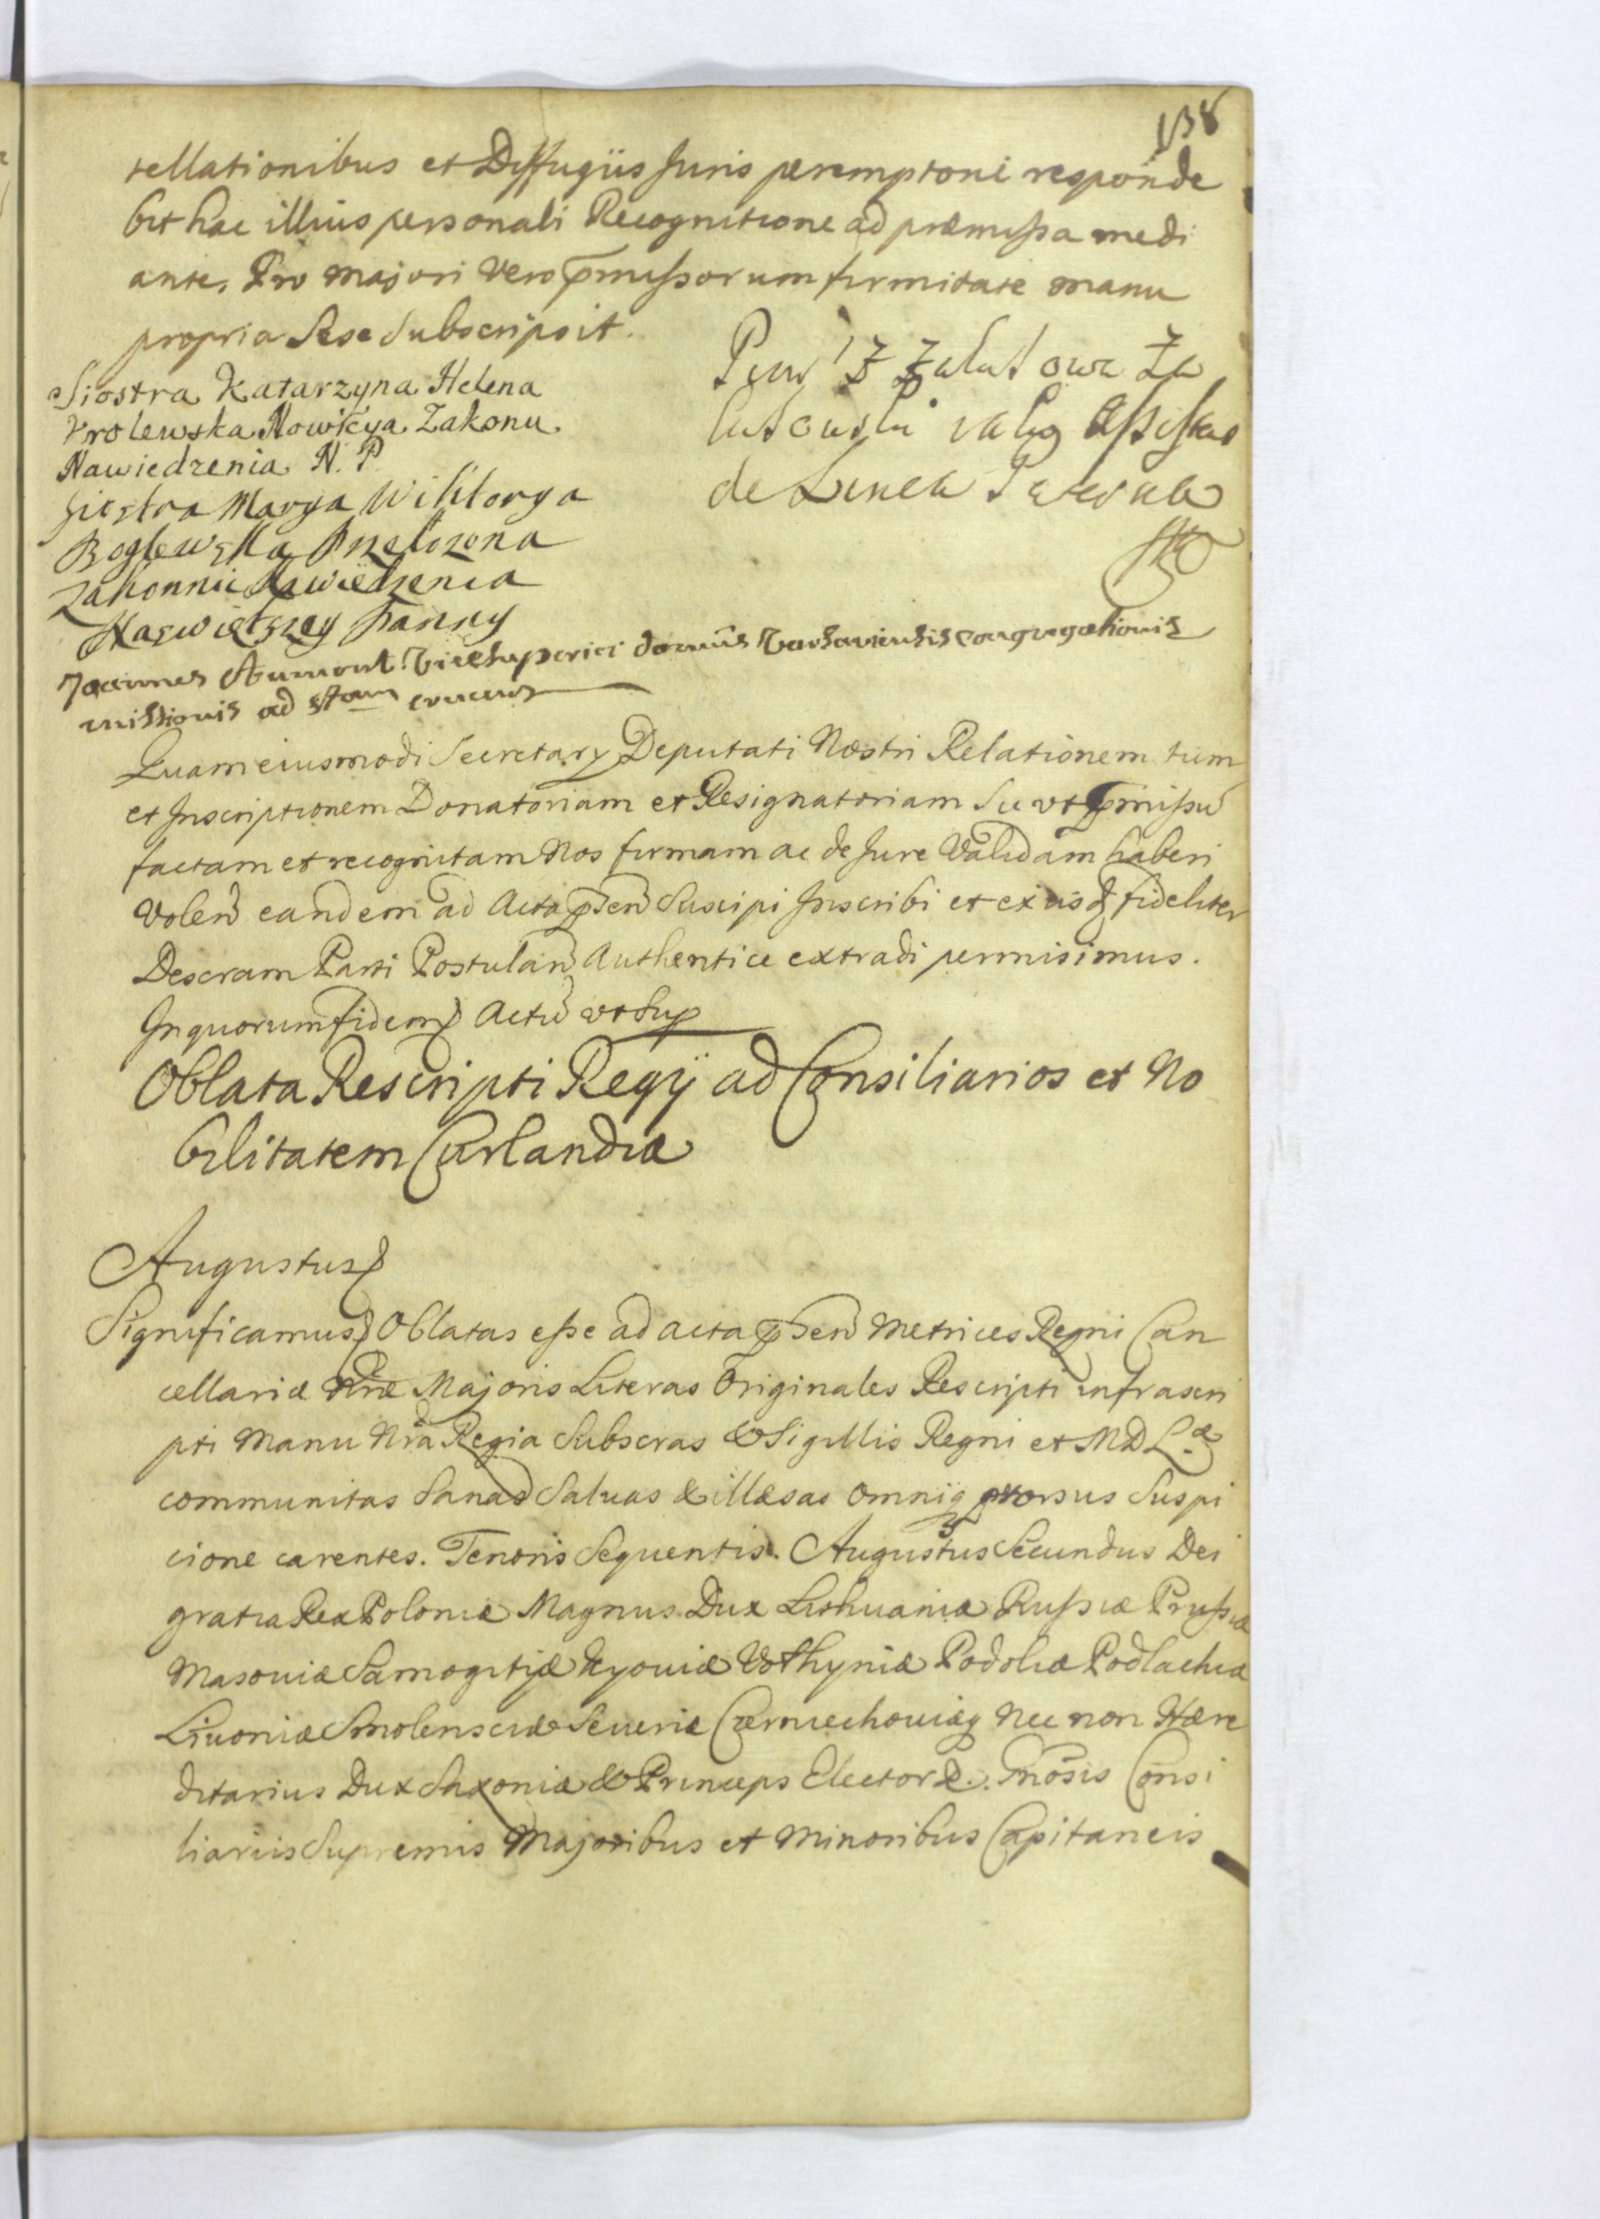 138
tellationibus et Diffugiis Juris peremptorie responde
bit hac illius personali Recognitione ad præmissa medi
ante. Pro majori vero pmissorum firmitate manu
propria Sese Subscripsit.
Siostra Katarzyna Helena
Krolewska Nowicya Zakonu
Nawiedzenia N. P.
Siostra Marya Wiktorya
Boglewska Przelozona
Zakonnic Nawiedzenia
Naswietszey Panny
Za
de Linea Paterna
Joannes Aumont Vicesuperior domus Varsaviensis congregationis
missionis ad stam crucem
Quam eiusmodi Secretary Deputati Nostri Relationem tum
et Inscriptionem Donatoriam et Resignatoriam Su vt pmissu
factam et recognitam Nos firmam ac de Jure Validam haberi
Volen eandem ad Acta pnsen Suscipi Inscribi et ex iisd fideliter
Descram Parti Postulan Authentice extradi permisimus.
In quorum fidem Actu vt Sup
Oblata Rescripti Regÿ ad Consiliarios et No
bilitatem Curlandiæ
Augustus
Significamus Oblatas esse ad acta pnsen Metrices Regni Can
cellariæ Nræ Majoris Literas Originales Rescripti infrascri
pti Manu Nrã Regia Subscras & Sigillis Regni et M D L.æ
communitas Sanas Saluas & illæsas omniq prorsus Suspi
cione carentes. Tenoris Sequentis. Augustus Secundus Dei
gratia Rex Poloniæ Magnus Dux Lithuaniæ Russiæ Prussiæ
Masouiæ Samogitiæ Kyouiæ Volhyniæ Podoliæ Podlachiæ
Liuoniæ Smolensciæ Seueriæ Czerniechouiæq Nec non Hære
ditarius Dux Saxoniæ & Princeps Elector &. Gnosis Consi
liariis Supremis Majoribus et Minoribus Capitaneis